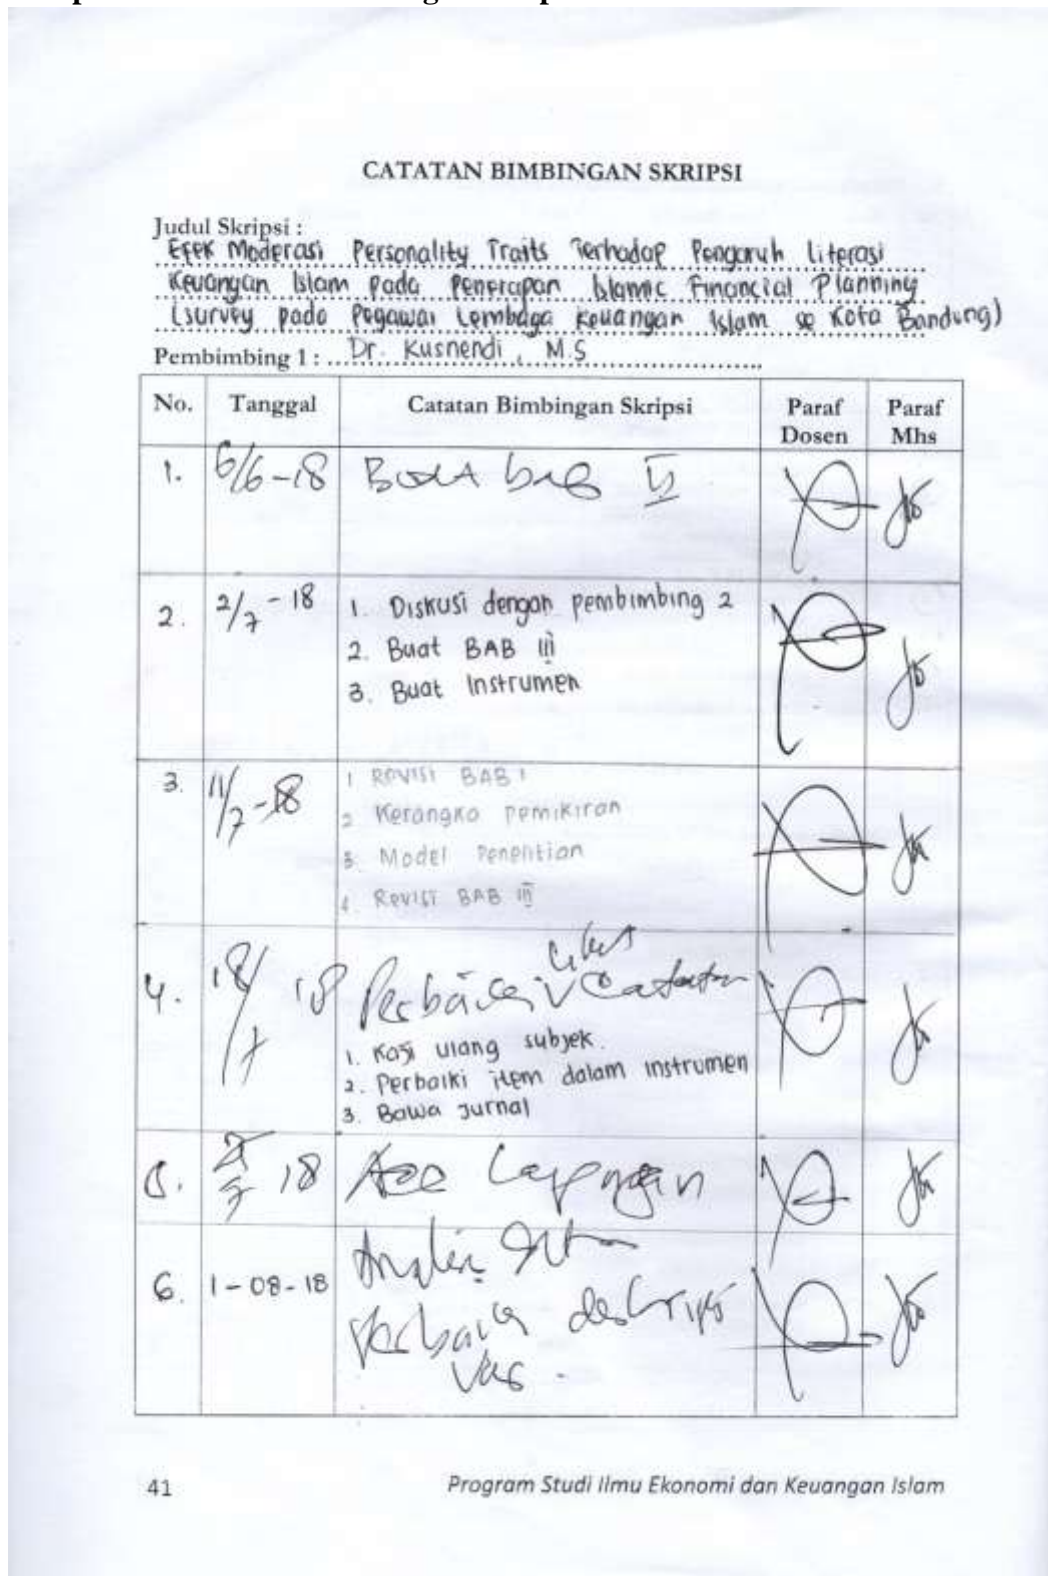 CATATAN BIMBINGAN SKRIPSI
Judul Skripsi :
Efek Moderasi Personality Traits Terhadap Pengaruh Literasi
Keuangan Islam pada Penerapan Islamic Financial Planning
(survey pada Pegawai Lembaga Keuangan Islam se Kota Bandung)
Pembimbing 1 : Dr. Kusnendi, M.S
No. Tanggal Catatan Bimbingan Skripsi Paraf Dosen Paraf Mhs
1. 6/6-18 bab II
2. 2/7-18 1. Diskusi dengan pembimbing 2
2. Buat BAB III
3. Buat Instrumen
3. 11/7-18 1 Revisi BAB 1
2 Kerangka pemikiran
3. Model Penelitian
4. Revisi BAB III
4. 18/7 18 Perbaiki Catatan
1. Kaji ulang subyek.
2. Perbaiki item dalam instrumen
3. Bawa Jurnal
5. 18 Acc Lapangan
6. 1-08-18
Perbaiki deskripsi
Var.
41 Program Studi Ilmu Ekonomi dan Keuangan Islam